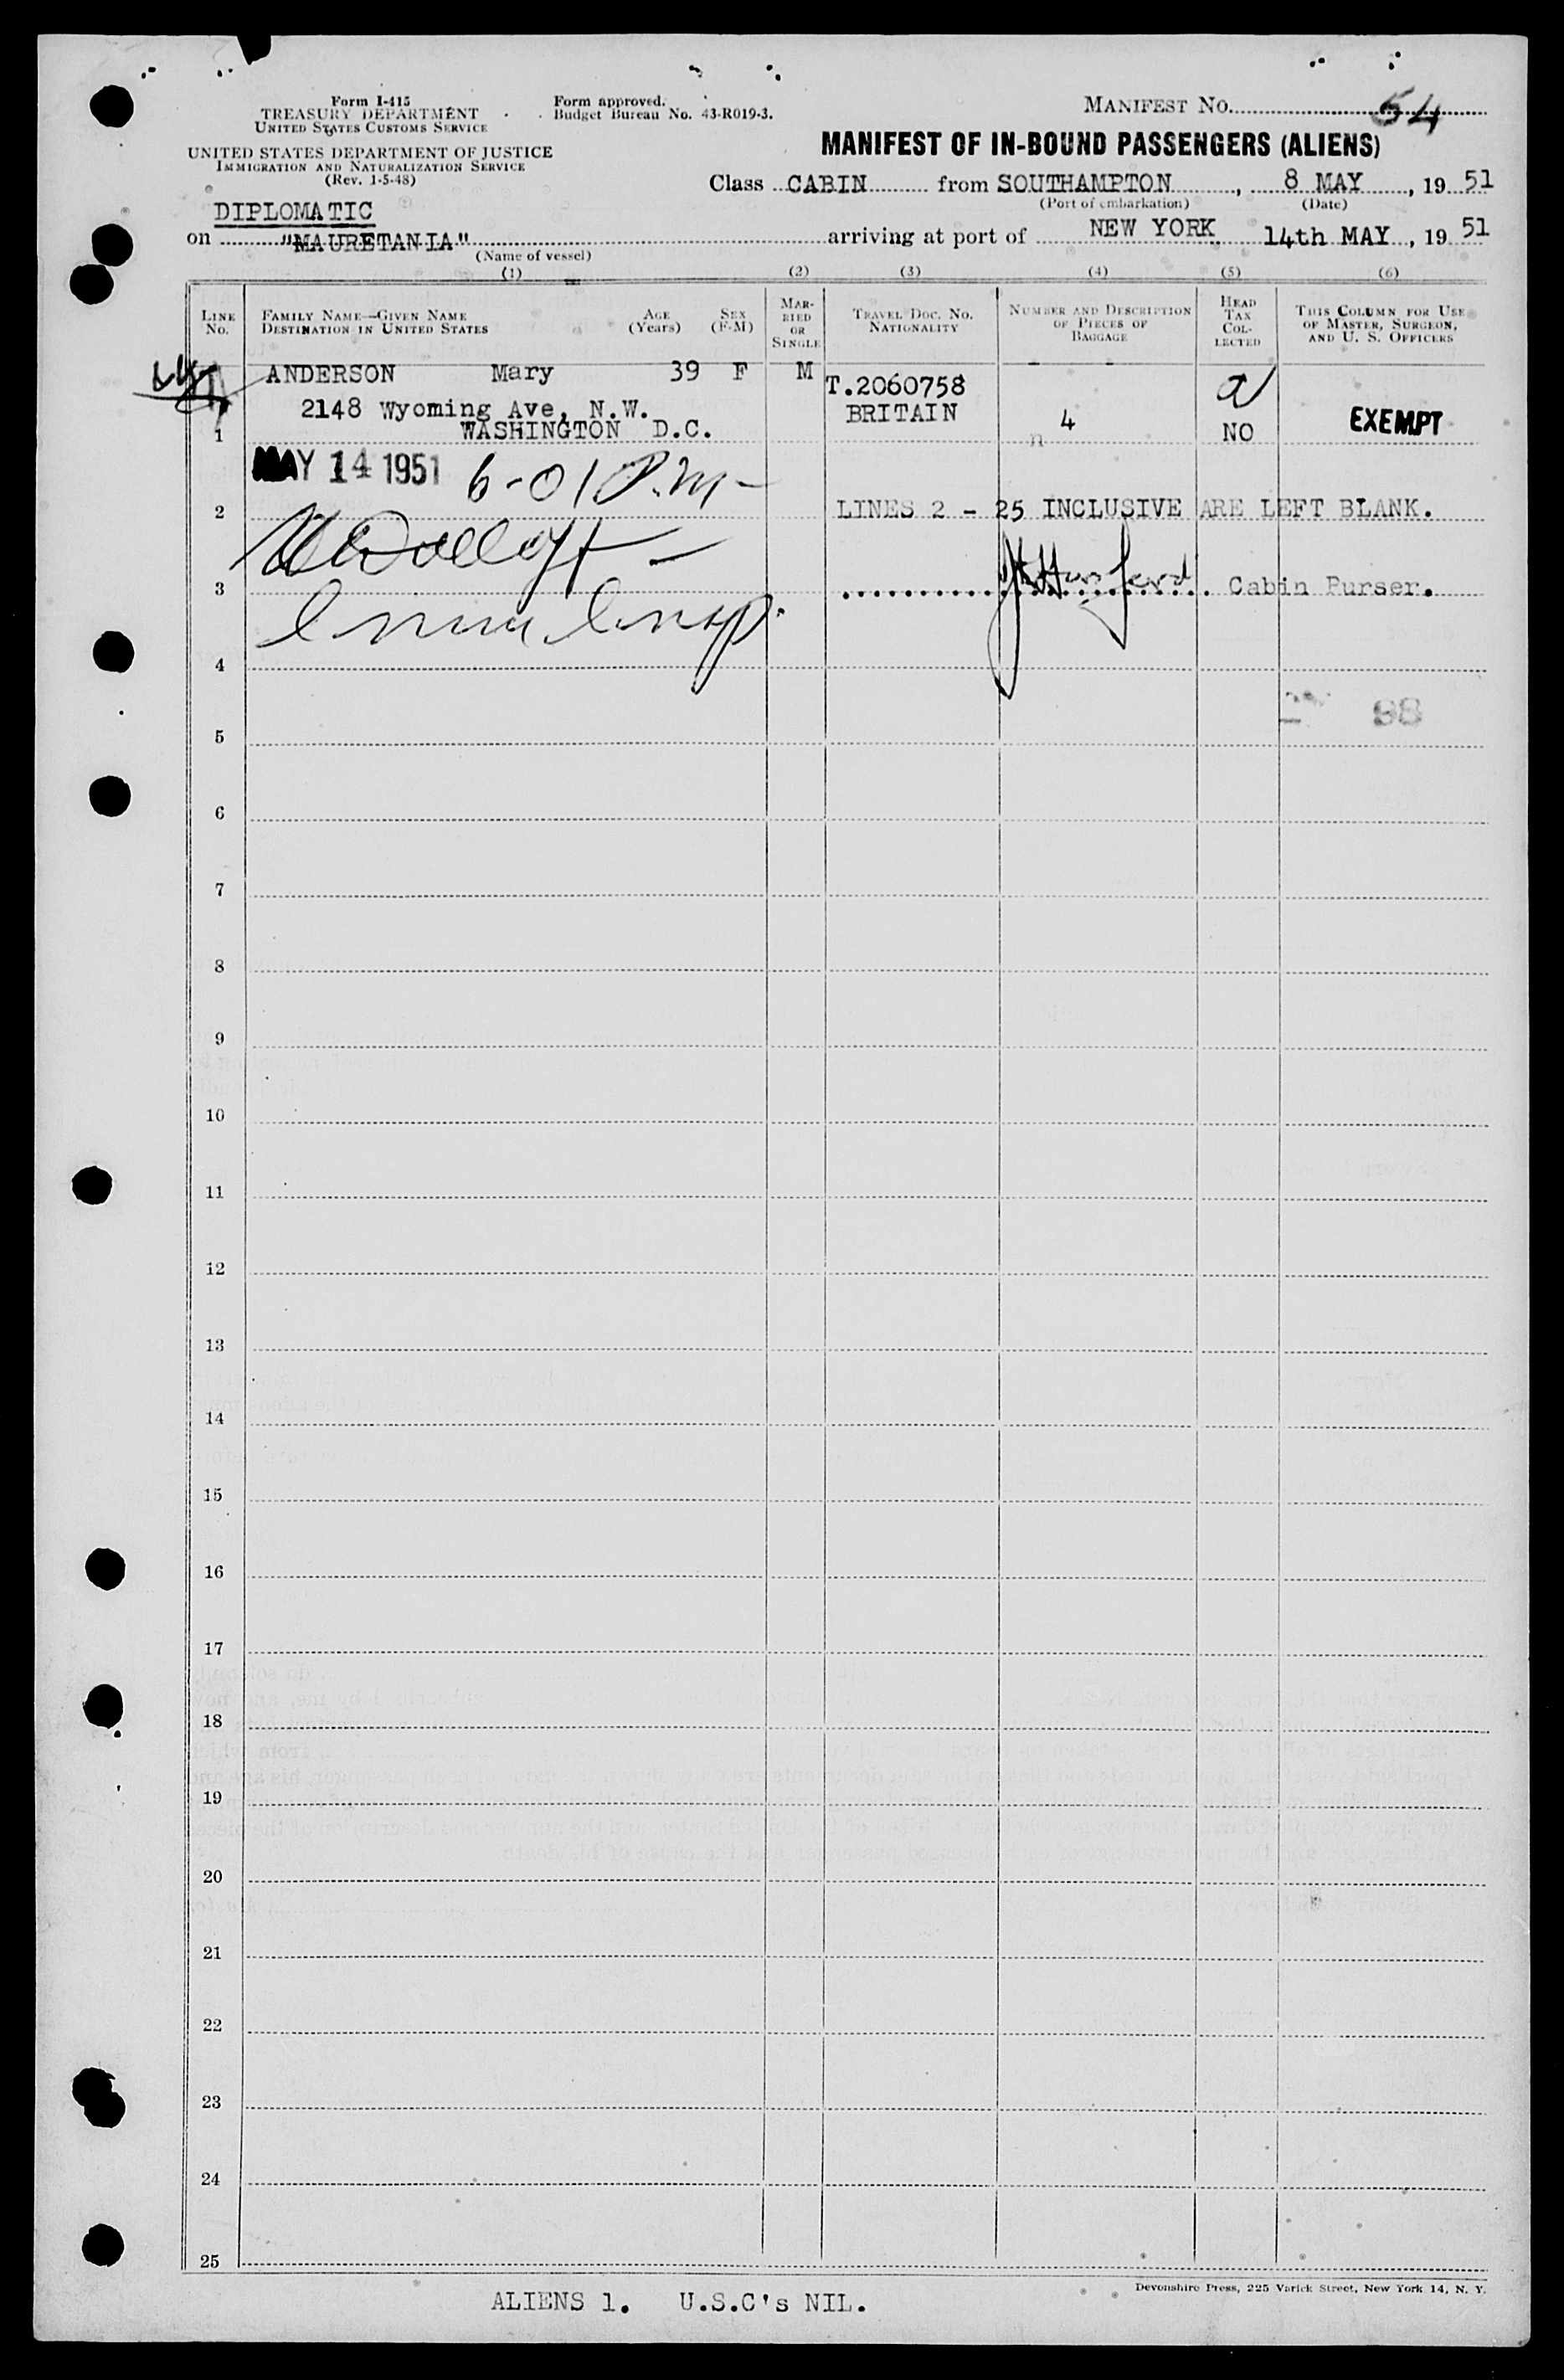 Form I-415
TREASURY DEPARTMENT
UNITED STATES CUSTOMS SERVICE
UNITED STATES DEPARTMENT OF JUSTICE
IMMIGRATION AND NATURALIZATION SERVICE
(Rev. 1-5-48)
Form approved.
Budget Bureau No. 43-R019-3.
MANIFEST No. 54
MANIFEST OF IN-BOUND PASSENGERS (ALIENS)
Class CABIN from SOUTHAMPTON, 8 MAY, 19 51
(Port of embarkation) (Date)
DIPLOMATIC
on "MAURETANIA" arriving at port of NEW YORK 14th MAY, 19 51
(Name of vessel)
(1) (2) (3) (4) (5) (6)
LINE No.
FAMILY NAME—GIVEN NAME
DESTINATION IN UNITED STATES
AGE (Years)
SEX (F-M)
MARRIED OR SINGLE
TRAVEL DOC. NO.
NATIONALITY
NUMBER AND DESCRIPTION OF PIECES OF BAGGAGE
HEAD TAX COLLECTED
THIS COLUMN FOR USE OF MASTER, SURGEON, AND U. S. OFFICERS
ANDERSON Mary 39 F M T.2060758
2148 Wyoming Ave, N.W. BRITAIN 4 EXEMPT
1 WASHINGTON D.C. NO
MAY 14 1951 6-01 P.M-
2 LINES 2 - 25 INCLUSIVE ARE LEFT BLANK.
3 Cabin Purser.
Immn Insp.
4
98
5
6
7
8
9
10
11
12
13
14
15
16
17
18
19
20
21
22
23
24
25
Devonshire Press, 225 Varick Street, New York 14, N. Y.
ALIENS 1. U.S.C's NIL.